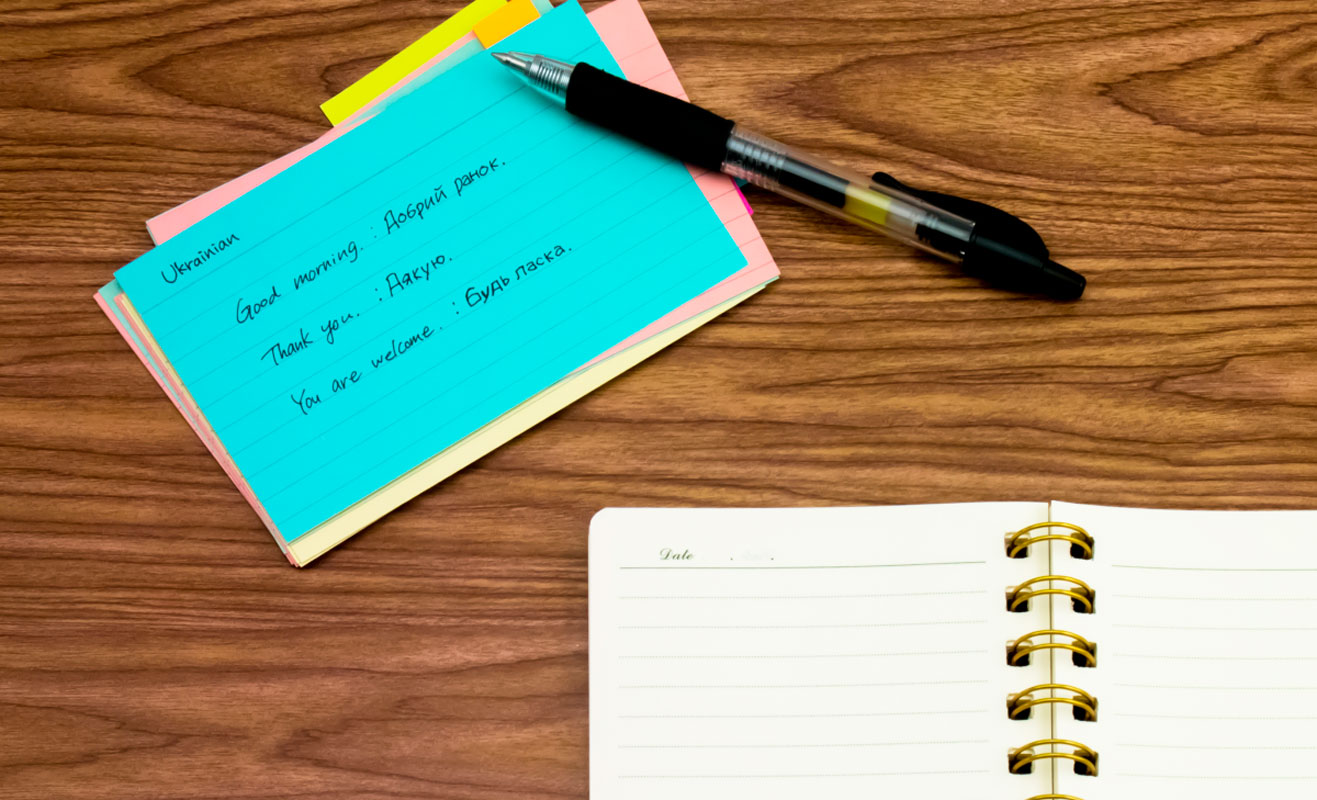 Ukrainian
Good morning. : Добрий ранок.
Thank you. : Дякую.
You are welcome. : Будь ласка.
Date . .